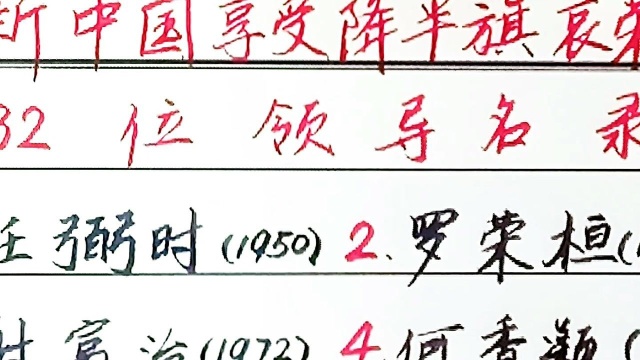 新中国享受降半旗哀荣
32位领导名录
任弼时(1950) 2.罗荣桓(1
谢富治(1972) 4.何香凝(